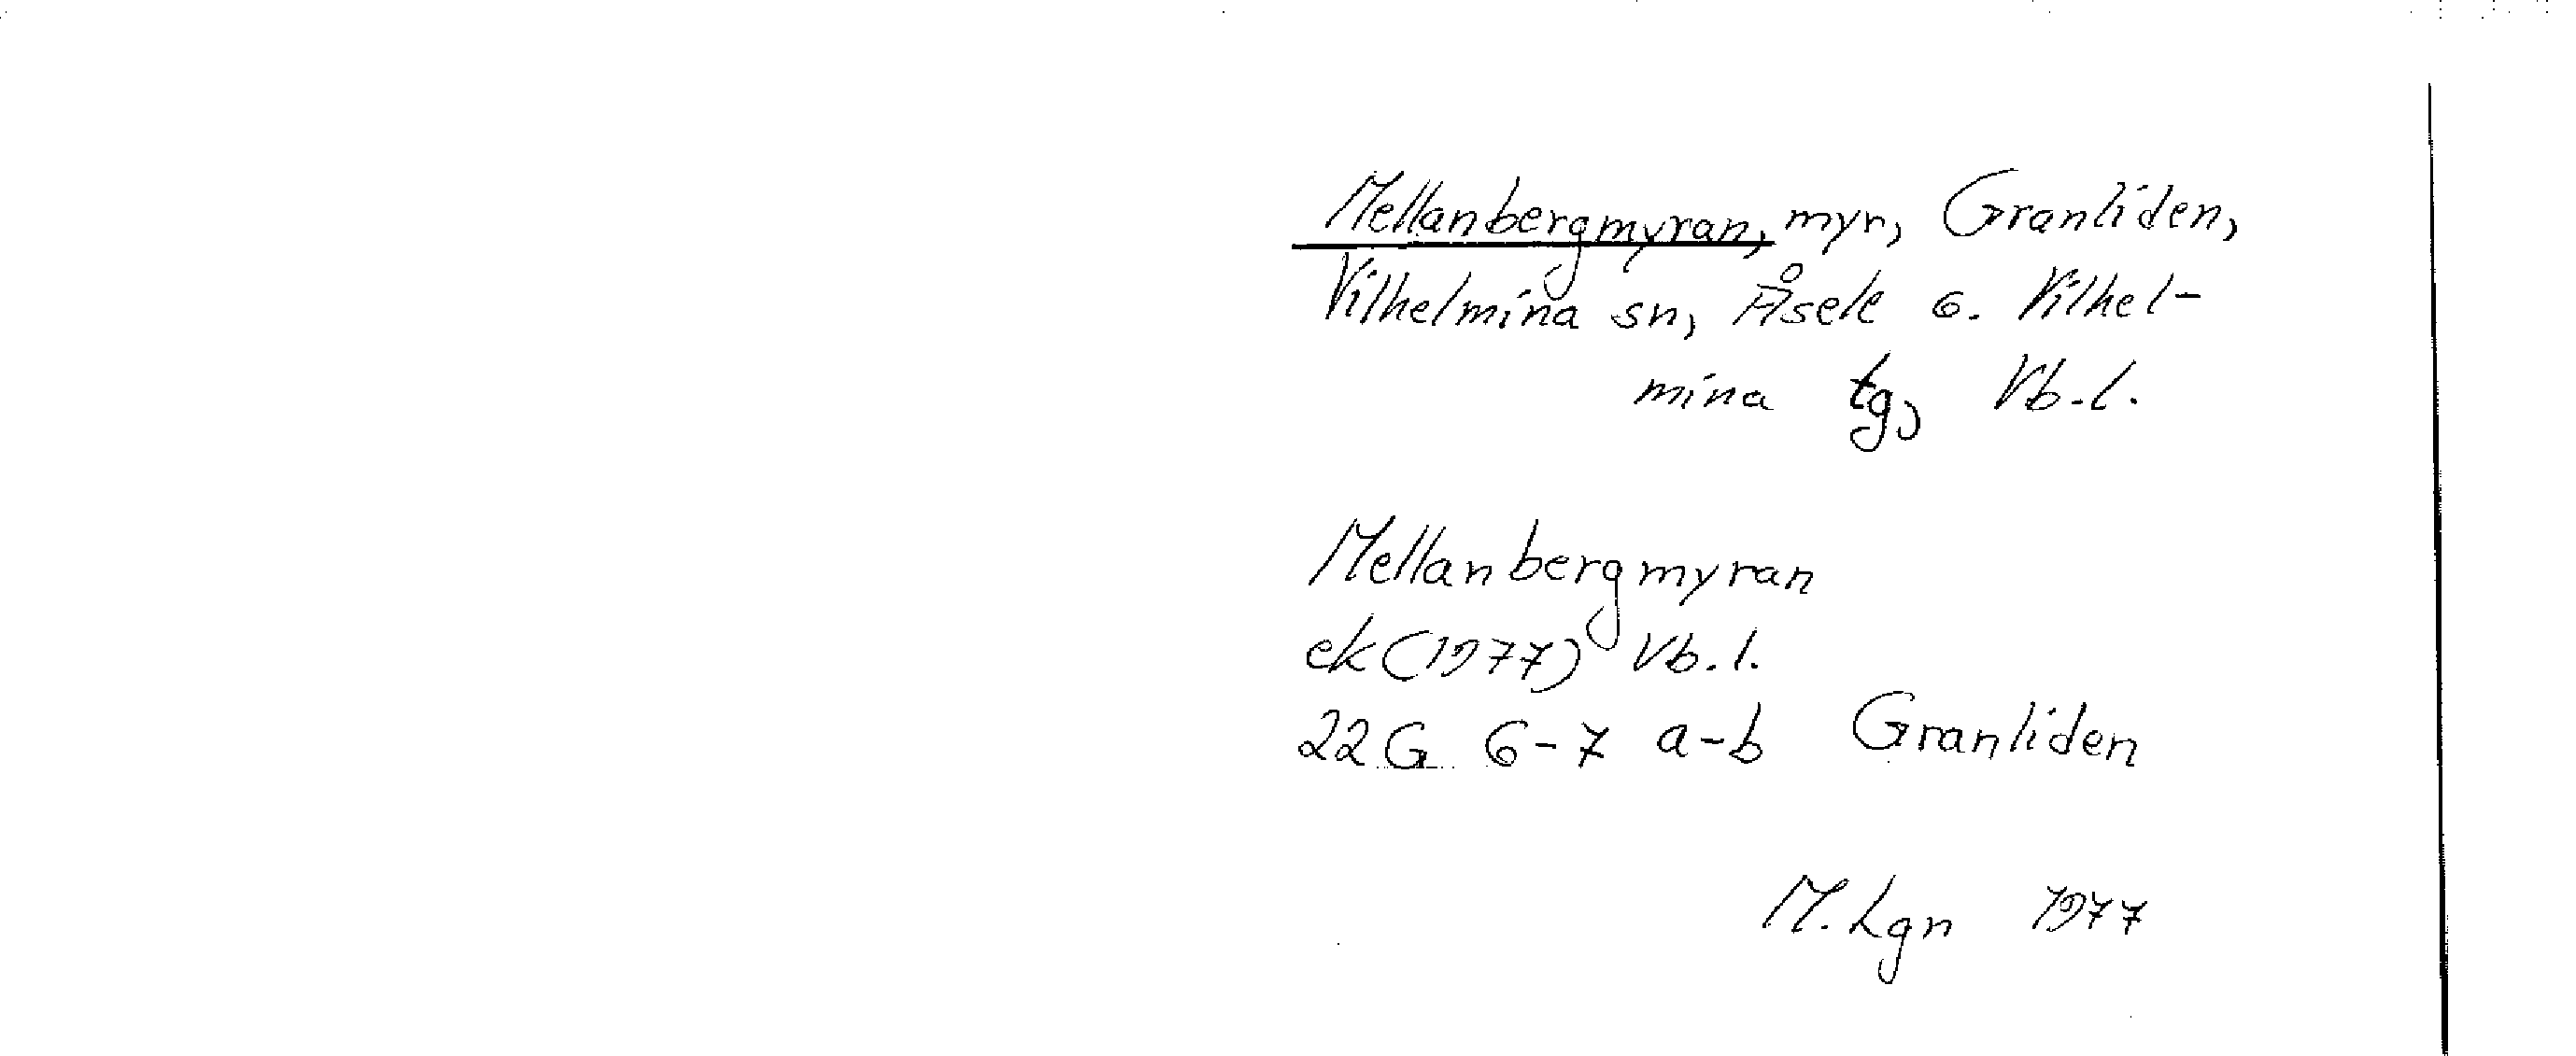 Mellanbergmyran, myr, Granliden,
Vilhelmina sn, Åsele o. Vilhel-
mina tg, Vb.l.
Mellanbergmyran
ek (1977) Vb.l.
22 G 6-7 a-b Granliden
M. Lgn 1977